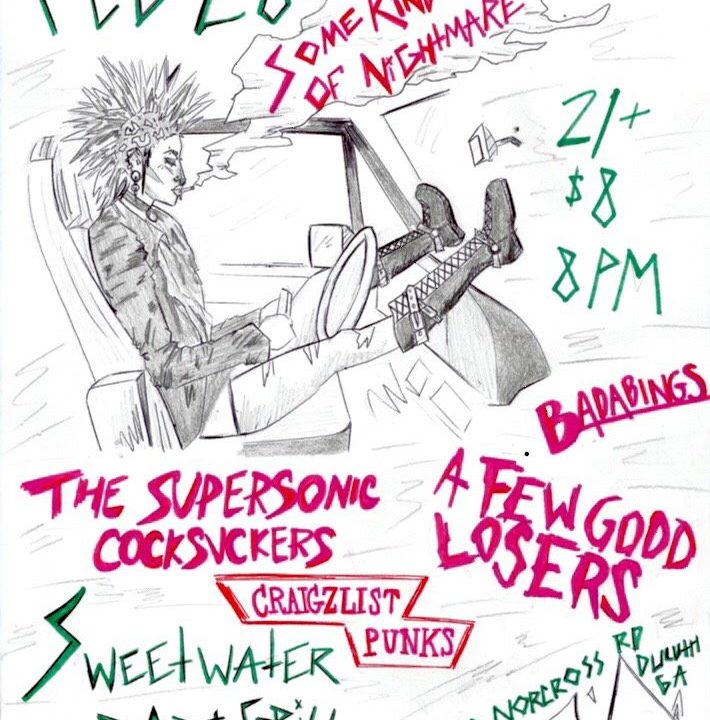 FEB 28
SOME KIND
OF NIGHTMARE
21+
$8
8PM
BADABINGS
THE SUPERSONIC
COCKSUCKERS
A FEW GOOD
LOSERS
CRAIGZLIST
PUNKS
SWEETWATER
NORCROSS RD
DULUTH
GA